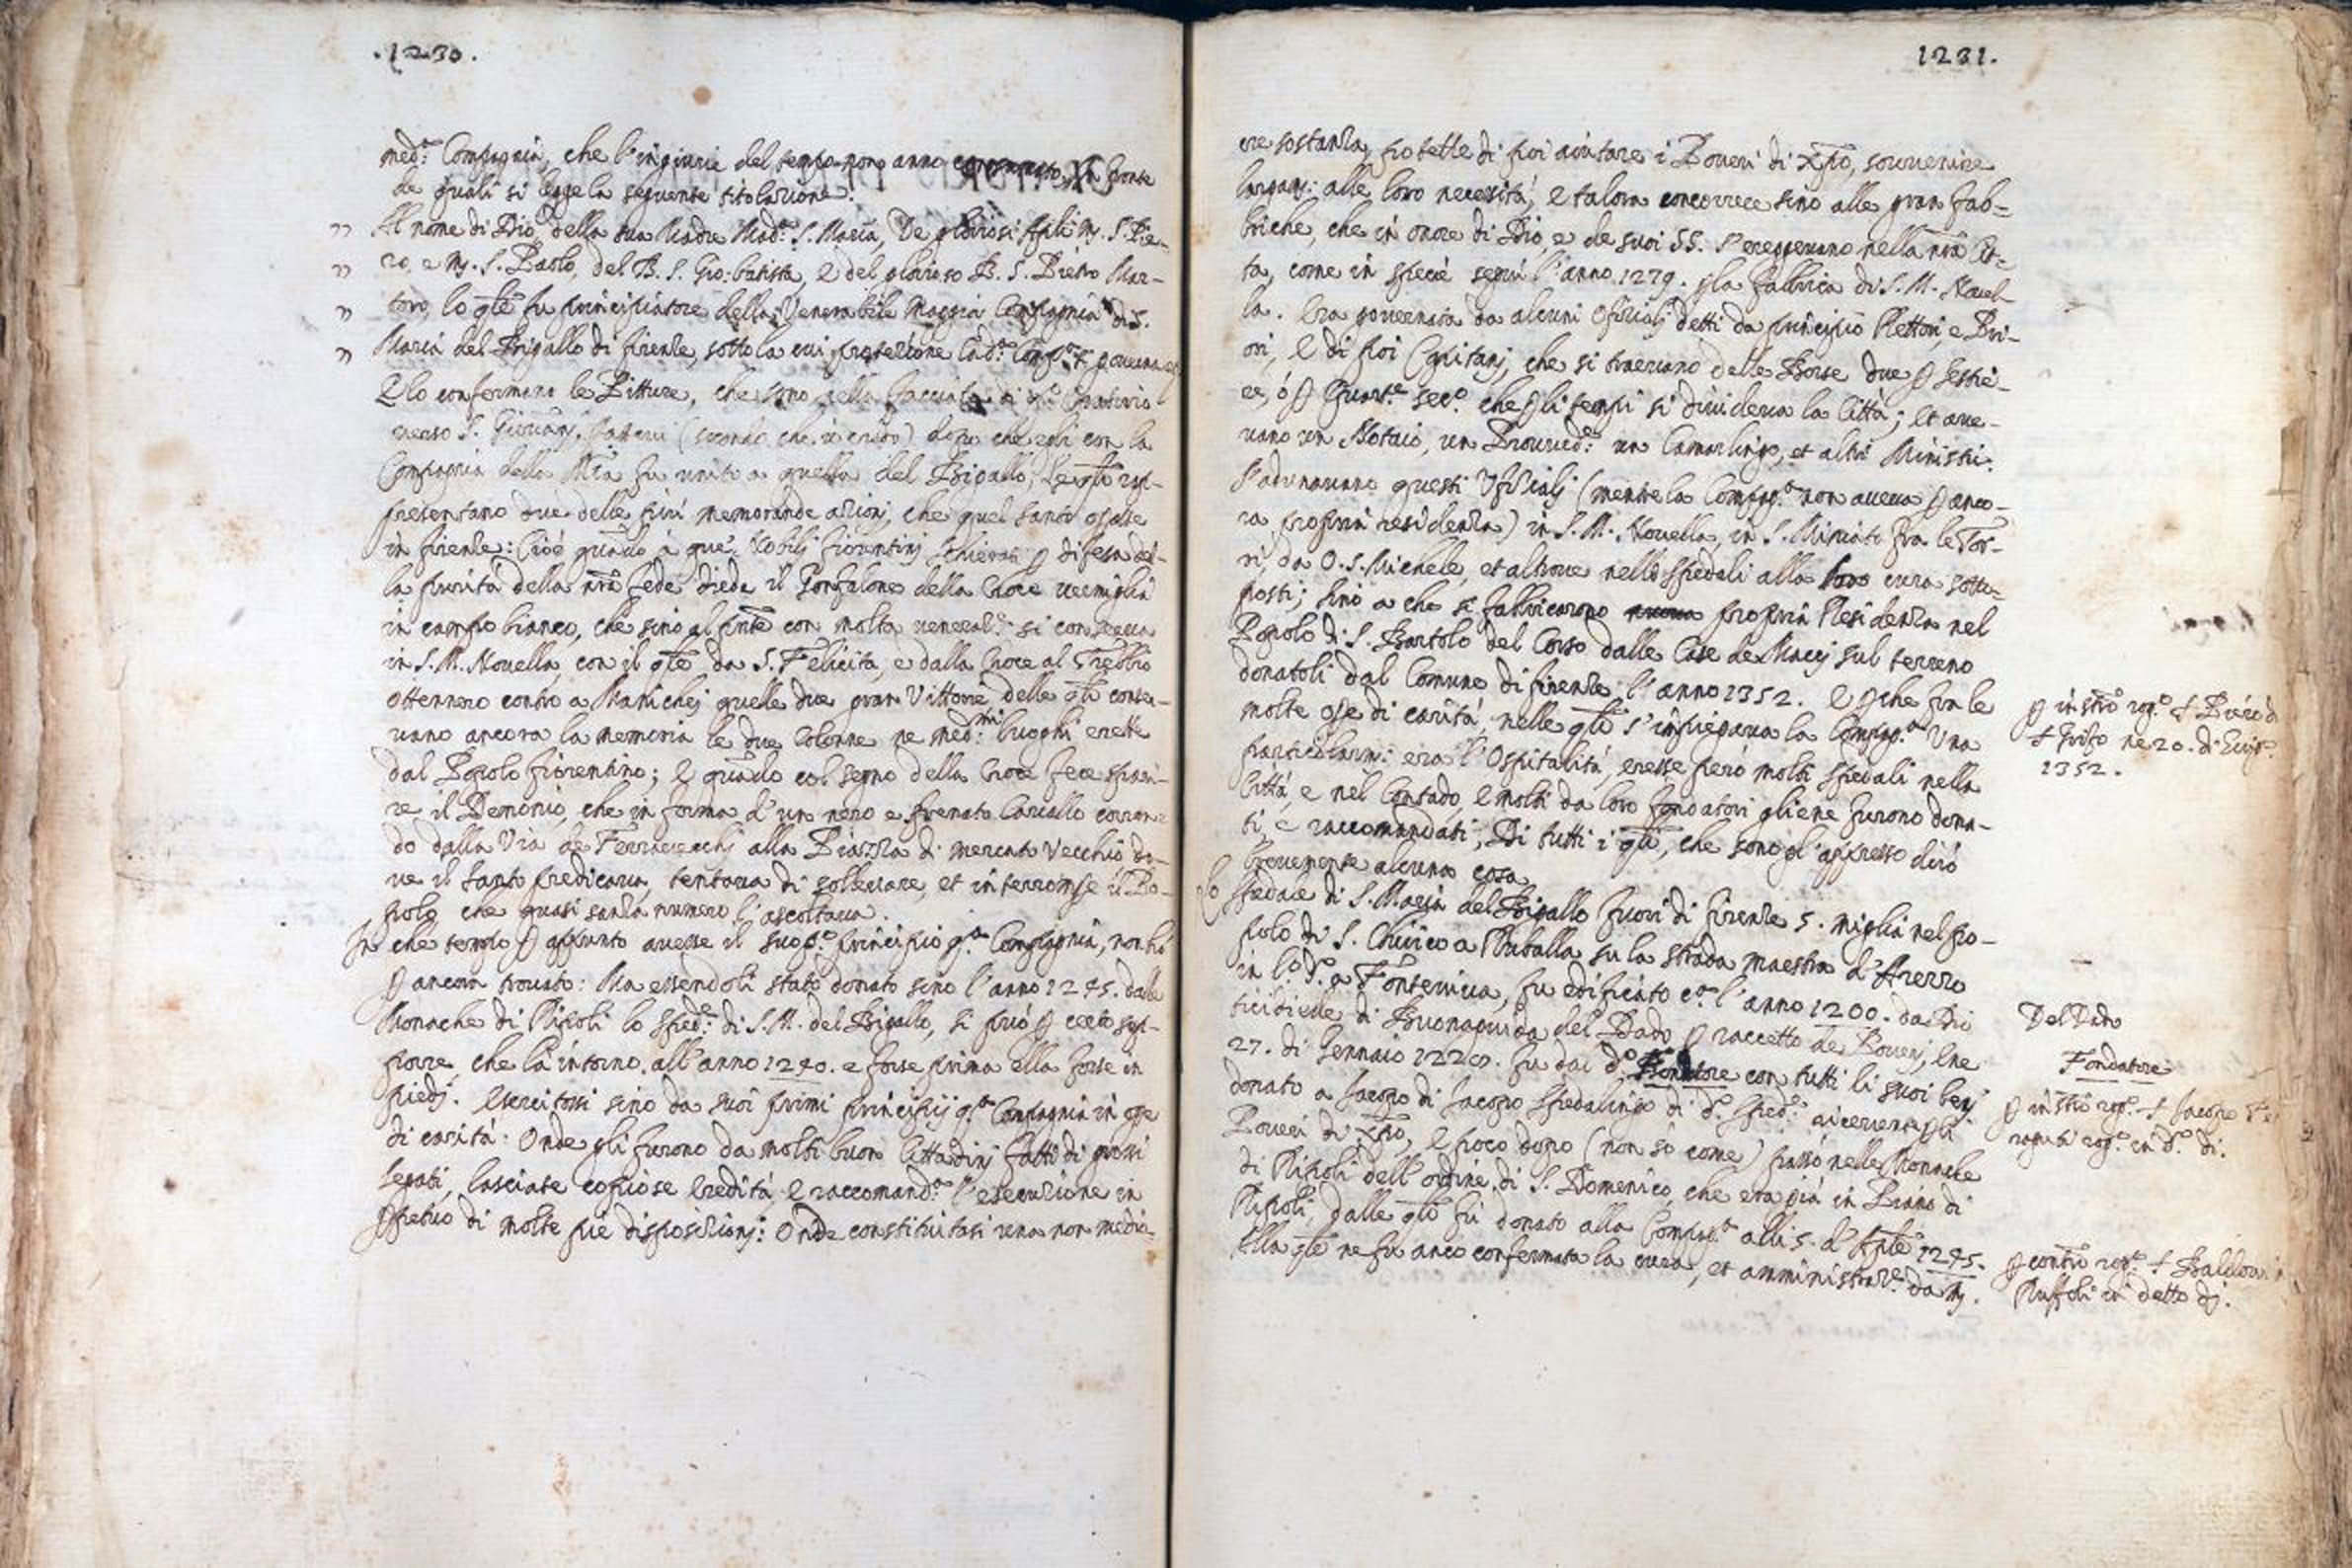 .1230.
med.ª Compagnia, che l'ingiurie del tempo non anno consumato, in fronte
de quali si legge la seguente titolazione.
Al nome di Dio, della sua Madre Mad.ª S. Maria, De gloriosi Apli M. S. Pie-
ro, e M. S. Paolo, del B. S. Gio: batista, e del glorioso B. S. Pietro Mar-
tore, lo qle fu principiatore della Venerabile Maggior Compagnia di S.
Maria del Bigallo di firenze, sotto la cui protezione la d.ª Comp.ª si governa
E lo confermano le Pitture, che sono nella facciata di d.º Oratorio
verso S. Giovanj, fattevi (secondo che io credo) dopo che egli con la
Compagnia della Mia fu unito a quella del Bigallo; Le qli rap-
presentano due delle più memorande azionj, che quel Santo operasse
in firenze: Cioè quādo a que' Nobilj fiorentinj schierati p difesa del-
la purità della nr̄a fede diede il Gonfalone della Croce vermiglia
in campo bianco, che sino al pnte con molta veneraz.e si conserva
in S. M. Novella, con il qle da S. Felicita, e dalla Croce al Trebbio
ottennero contro a Manichej quelle due gran Vittorie, delle qli conser-
vano ancora la memoria le due Colonne ne med:mi luoghi erette
dal Popolo fiorentino; e quādo col segno della Croce fece spari-
re il Demonio, che in forma d'un nero e sfrenato Cavallo corren-
do dalla Via de Ferravecchj alla Piazza di Mercato Vecchio do-
ve il Santo predicava, tentava di sollevare, et interrompe il Po-
polo, che quasi sanza numero l'ascoltava.
In che tempo p appunto avesse il suo p.º principio q.ª Compagnia, non ho
p ancora trovato: Ma essendoli stato donato sino l'anno 1245. dalle
Monache di Ripoli lo Sped.e di S. M. del Bigallo, si può p certo sup-
porre, che là intorno all'anno 1240. e forse prima ella fosse in
piedj. Esercitossi sino da suoi primi principij q.ª Compagnia in ope
di carità: Onde gli furono da molti buon Cittadinj fatti di grossi
legati, lasciate copiose Eredità, e raccomand.ª l'esecuzione in
ppetuo di molte pie disposizionj: Onde constituitasi una non medio-
1231.
cre sostanza, potette di poi aiutare i Poveri di Xp̄o, sovvenire
largam: alle loro necessità, e talora concorrere sino alle gran fab-
briche, che in onore di Dio, e de suoi SS. s'ereggevano nella nr̄a Cit-
ta, come in specie seguì l'anno 1279. p la fabbrica di S. M. Novel-
la. Era governata da alcuni Ofizialj detti da principio Rettori, e Pri-
ori, e di poi Capitanj, che si traevano delle Borse due p Sestie-
re, ò p Quart.e sec.º che p li tempi si divideva la Città; et ave-
vano un Notaio, un Provved.e un Camarlingo, et altri Ministri.
S'adunavano questi Ufizialj (mentre la Compag.ª non aveva p anco-
ra propria residenza) in S. M. Novella, in S. Miniato fra le Tor-
ri, da O. S. Michele, et altrove nelli Spedali alla loro cura sotto-
posti; sino a che si fabbricarono propria Residenza nel
Popolo di S. Bartolo del Corso dalle Case de Maccj sul terreno
donatoli dal Comune di firenze l'anno 1352. E p che fra le
molte ope di carità, nelle qli s'impiegava la Compag.ª Una
particolarm: era l'Ospitalità, eresse però molti Spedali nella
Città, e nel Contado, e molti da loro fondatori gliene furono dona-
ti, e raccomandati; Di tutti i qli, che sono gl'appresso dirò
brevemente alcuna cosa.
Lo Spedale di S. Maria del Bigallo fuori di firenze 5. miglia nel po-
polo di S. Chirico a Ruballa su la strada maestra d'Arezzo
in l.º d.º a Fonteviva, fu edificato c.ª l'anno 1200. da Dio
ticidiede di Buonaguida del Dado p raccetto de Poverj, Ene
27. di Gennaio 122 . fu dal d.º Fondatore con tutti li suoi benj
donato a Jacopo di Jacopo Spedalingo di d.º Sped.e
Poveri di Xp̄o, e poco dopo (non sò come) passò nelle Monache
di Ripoli dell'ordine di S. Domenico, che era già in Piano di
Ripoli, dalle qli fù donato alla Compag.ª alli 5. d'Aple 1245.
Alla qle ne fu anco confermata la cura, et amministraz.e da M.
p instrō rog.º S. Piero d
S. Grifo ne 20. di Giug.º
1352.
Del Dado
Fondatore
p instrō rog.º S. Jacopo
rog.º in d.º dì.
p contrō rog.º S. Baldovi
Ruffoli in detto dj.